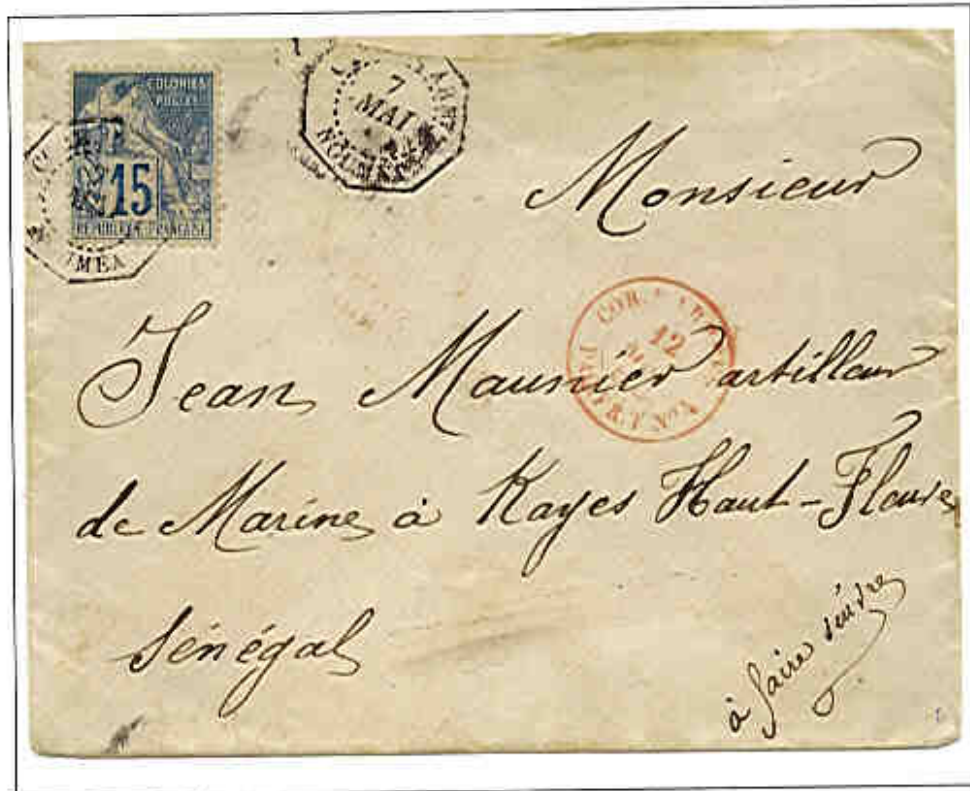 COLONIES
POSTES
15
RÉPUBLIQUE FRANÇAISE
7
MAI
NOUMEA
COR.
12
Monsieur
Jean Maunier artilleur
de Marine à Kayes Haut-Fleuve
Sénégal
à faire suivre